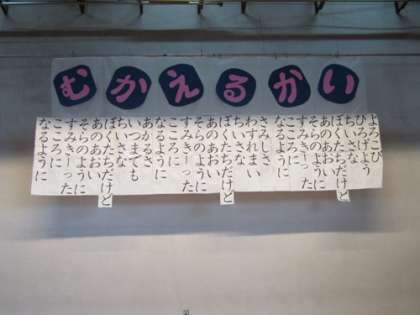 むかえるかい
よろこび
ひろげよう
ちいさな
ぼくたちだけど
あのあおい
そらのように
すみきーった
こころに
なるように
さみしさ
わすれまい
ちいさな
ぼくたちだけど
あのあおい
そらのように
すみきーった
こころに
なるように
あかるさ
いつまでも
ちいさな
ぼくたちだけど
あのあおい
そらのように
すみきーった
こころに
なるように